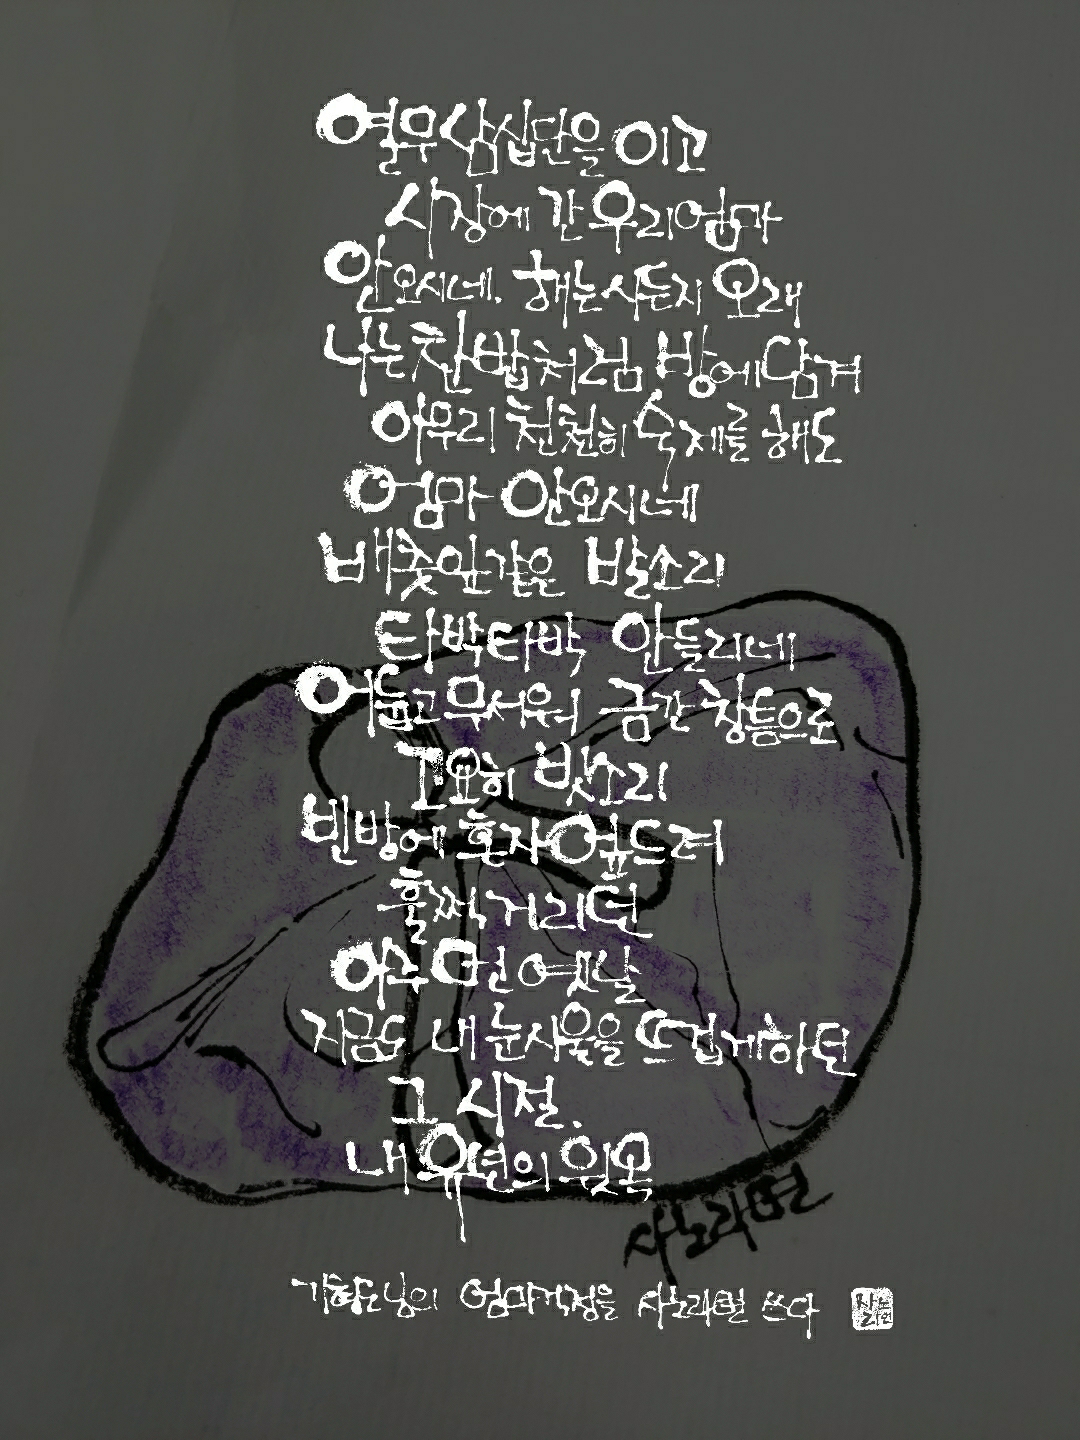 열무삼십단을 이고
시장에 간 우리엄마
안오시네. 해는시든지 오래
나는 찬밥처럼 방에담겨
아무리 천천히 숙제를 해도
엄마 안오시네
배춧잎같은 발소리
타박타박 안들리네
어둡고 무서워 금간 창틈으로
고요히 빗소리
빈방에 혼자 엎드려
훌쩍거리던
아주 먼 옛날
지금도 내 눈시울을 뜨겁게하던
그 시절.
내 유년의 윗목
사노라면
기형도님의 엄마걱정을 사노라면 쓰다